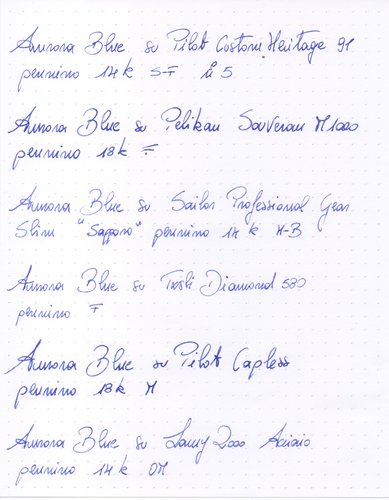 Aurora Blue su Pilot Custom Heritage 91
pennino 14k SF n° 5
Aurora Blue su Pelikan Souveran M1000
pennino 18k F
Aurora Blue su Sailor Professional Gear
Slim "Sapporo" pennino 14k H-B
Aurora Blue su Twsbi Diamond 580
pennino F
Aurora Blue su Pilot Capless
pennino 18k M
Aurora Blue su Lamy 2000 Acciaio
pennino 14k OM